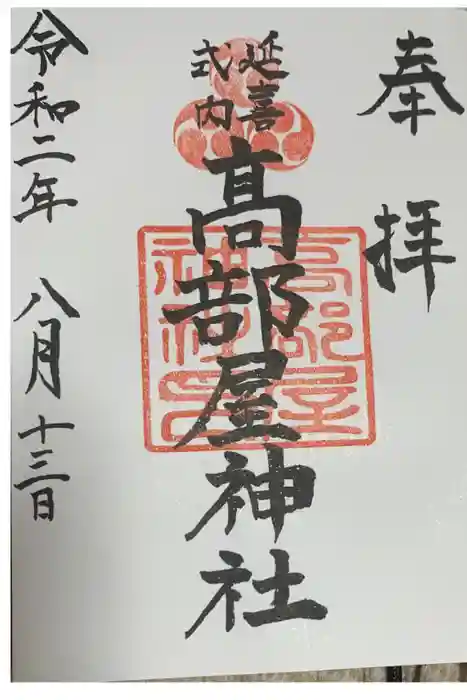 奉拝
延喜
式内
髙部屋神社
髙部屋
神社印
令和二年 八月十三日